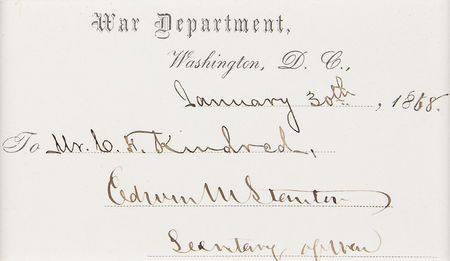 War Department,
Washington, D. C.,
January 30th, 1868.
To Mr. C. F. Kindred,
Edwin M Stanton
Secretary of War